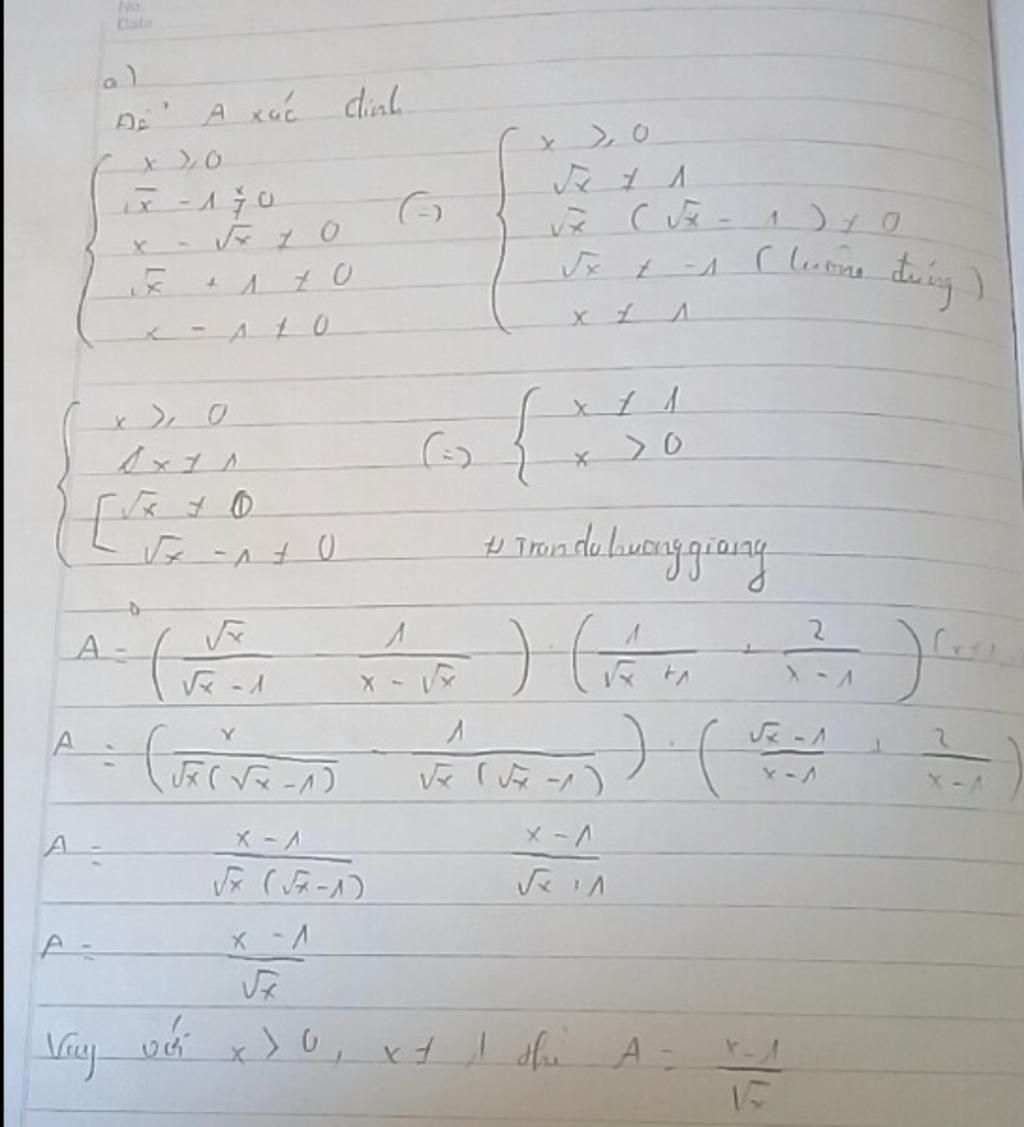 No.
Date
a)
Để A xác định
{ x ≥ 0
√x - 1 ≠ 0
x - √x ≠ 0
√x + 1 ≠ 0
x - 1 ≠ 0
(=) { x ≥ 0
√x ≠ 1
√x (√x - 1) ≠ 0
√x ≠ -1 (luôn đúng)
x ≠ 1
{ x ≥ 0
x ≠ 1
[ √x ≠ 0
√x - 1 ≠ 0
(=) { x ≠ 1
x > 0
# Tranduhuonggiang
A = ( √x / (√x - 1) - 1 / (x - √x) ) : ( 1 / (√x + 1) + 2 / (x - 1) )
A = ( x / (√x(√x - 1)) - 1 / (√x(√x - 1)) ) : ( (√x - 1) / (x - 1) + 2 / (x - 1) )
A = (x - 1) / (√x(√x - 1)) . (x - 1) / (√x + 1)
A = (x - 1) / √x
Vậy với x > 0, x ≠ 1 thì A = (x - 1) / √x